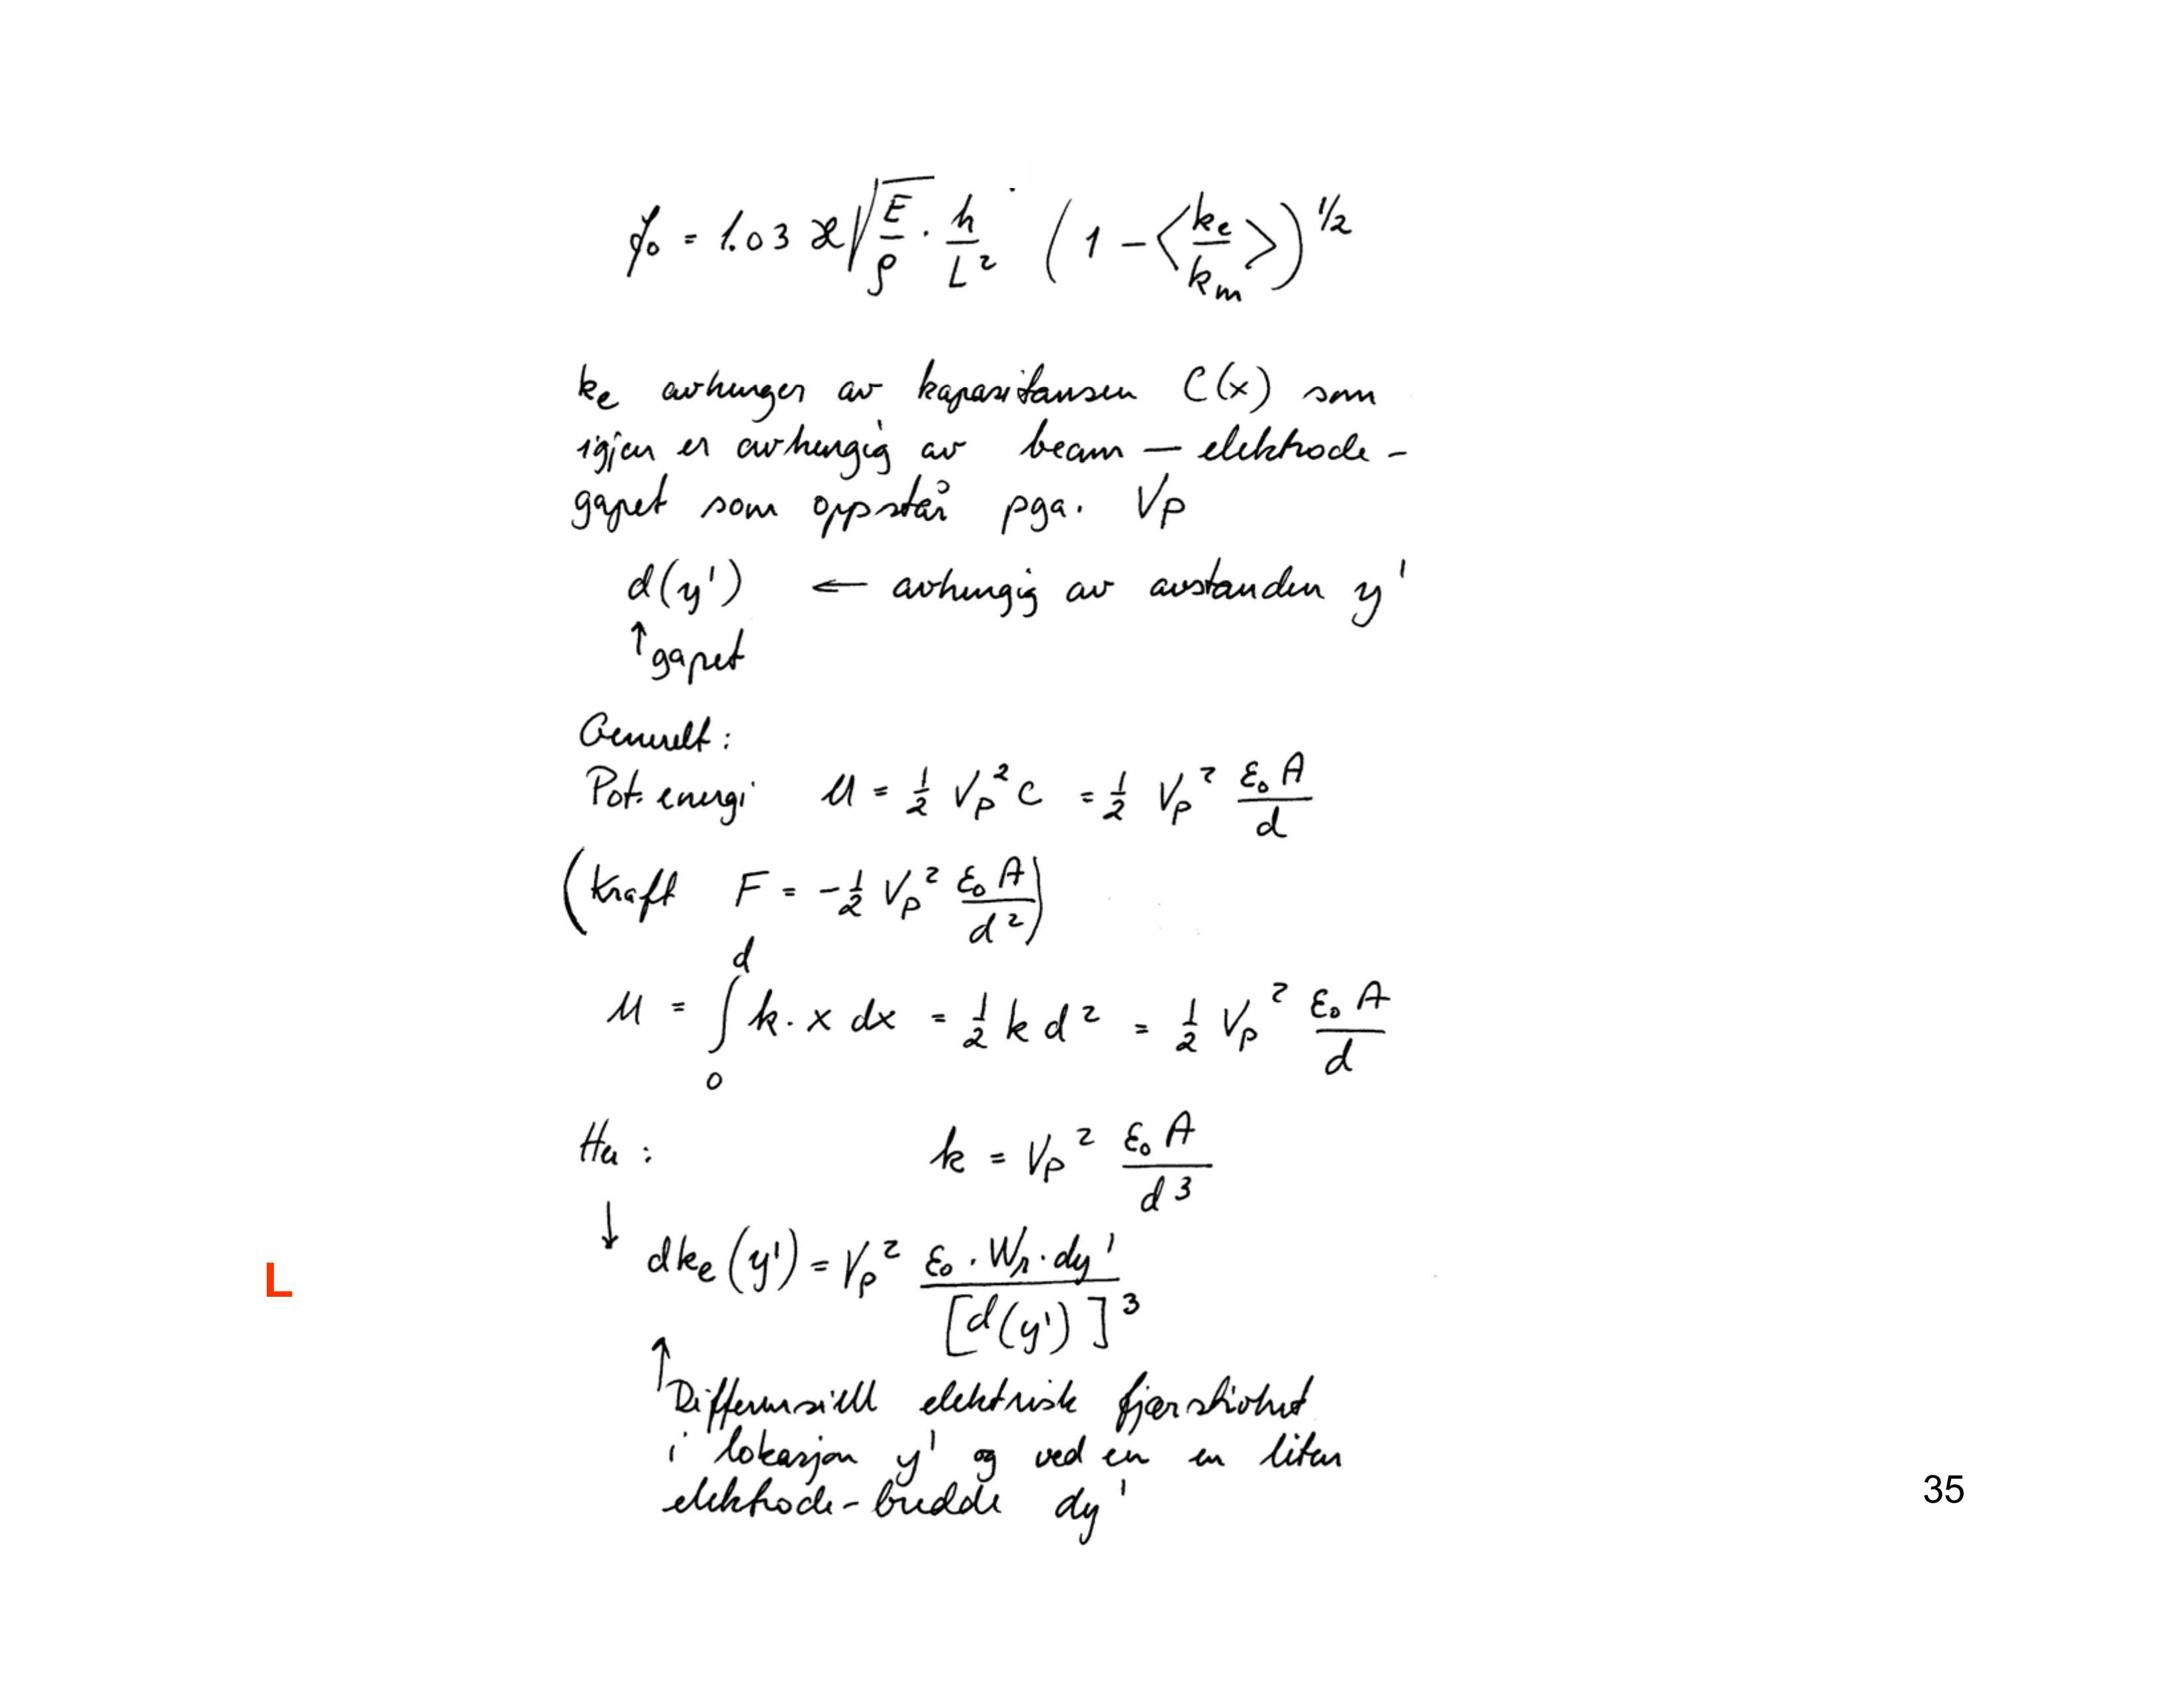 f₀ = 1.03 ϰ √(E/ρ) · h/L² (1 − ⟨kₑ/kₘ⟩)^½
kₑ avhenger av kapasitansen C(x) som
igjen er avhengig av beam – elektrode -
gapet som oppstår pga. Vp
d(y') ← avhengig av avstanden y'
↑ gapet
Generelt:
Pot. energi U = ½ Vp² C = ½ Vp² ε₀A/d
(Kraft F = -½ Vp² ε₀A/d²)
U = ∫₀ᵈ k · x dx = ½ k d² = ½ Vp² ε₀A/d
Her : k = Vp² ε₀A/d³
↓ dkₑ(y') = Vp² ε₀ · Wr · dy' / [d(y')]³
L
↑ Differensiell elektrisk fjærstivhet
i lokasjon y' og ved en en liten
elektrode-bredde dy'
35